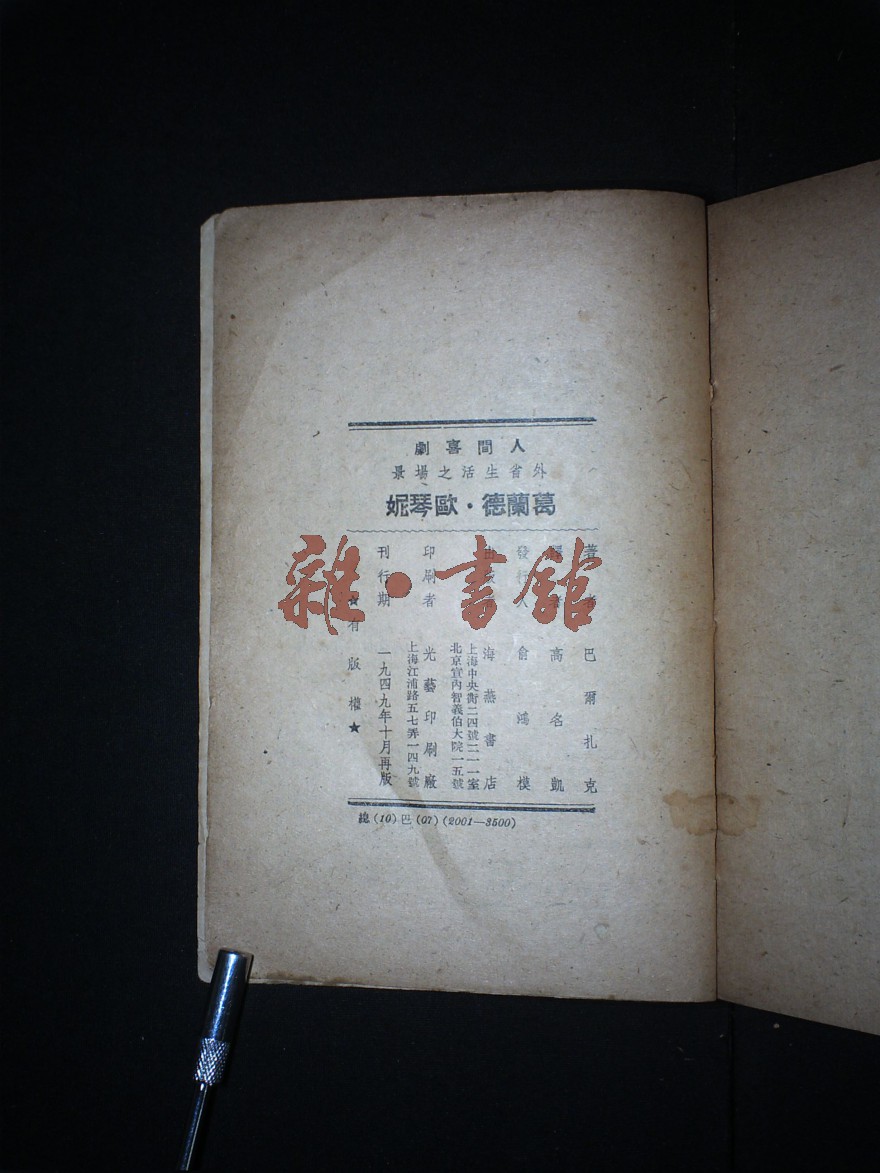 人間喜劇
外省生活之場景
葛蘭德·歐琴妮
著者 巴爾扎克
譯者 高名凱
發行人 俞鴻模
海燕書店
上海中央衖二四號二一一室
北京宣內智義伯大院一五號
印刷者 光藝印刷廠
上海江浦路五七弄一四九號
刊行期 一九四九年十月再版
★有版權★
總(10)巴(07)(2001—3500)
雜·書館